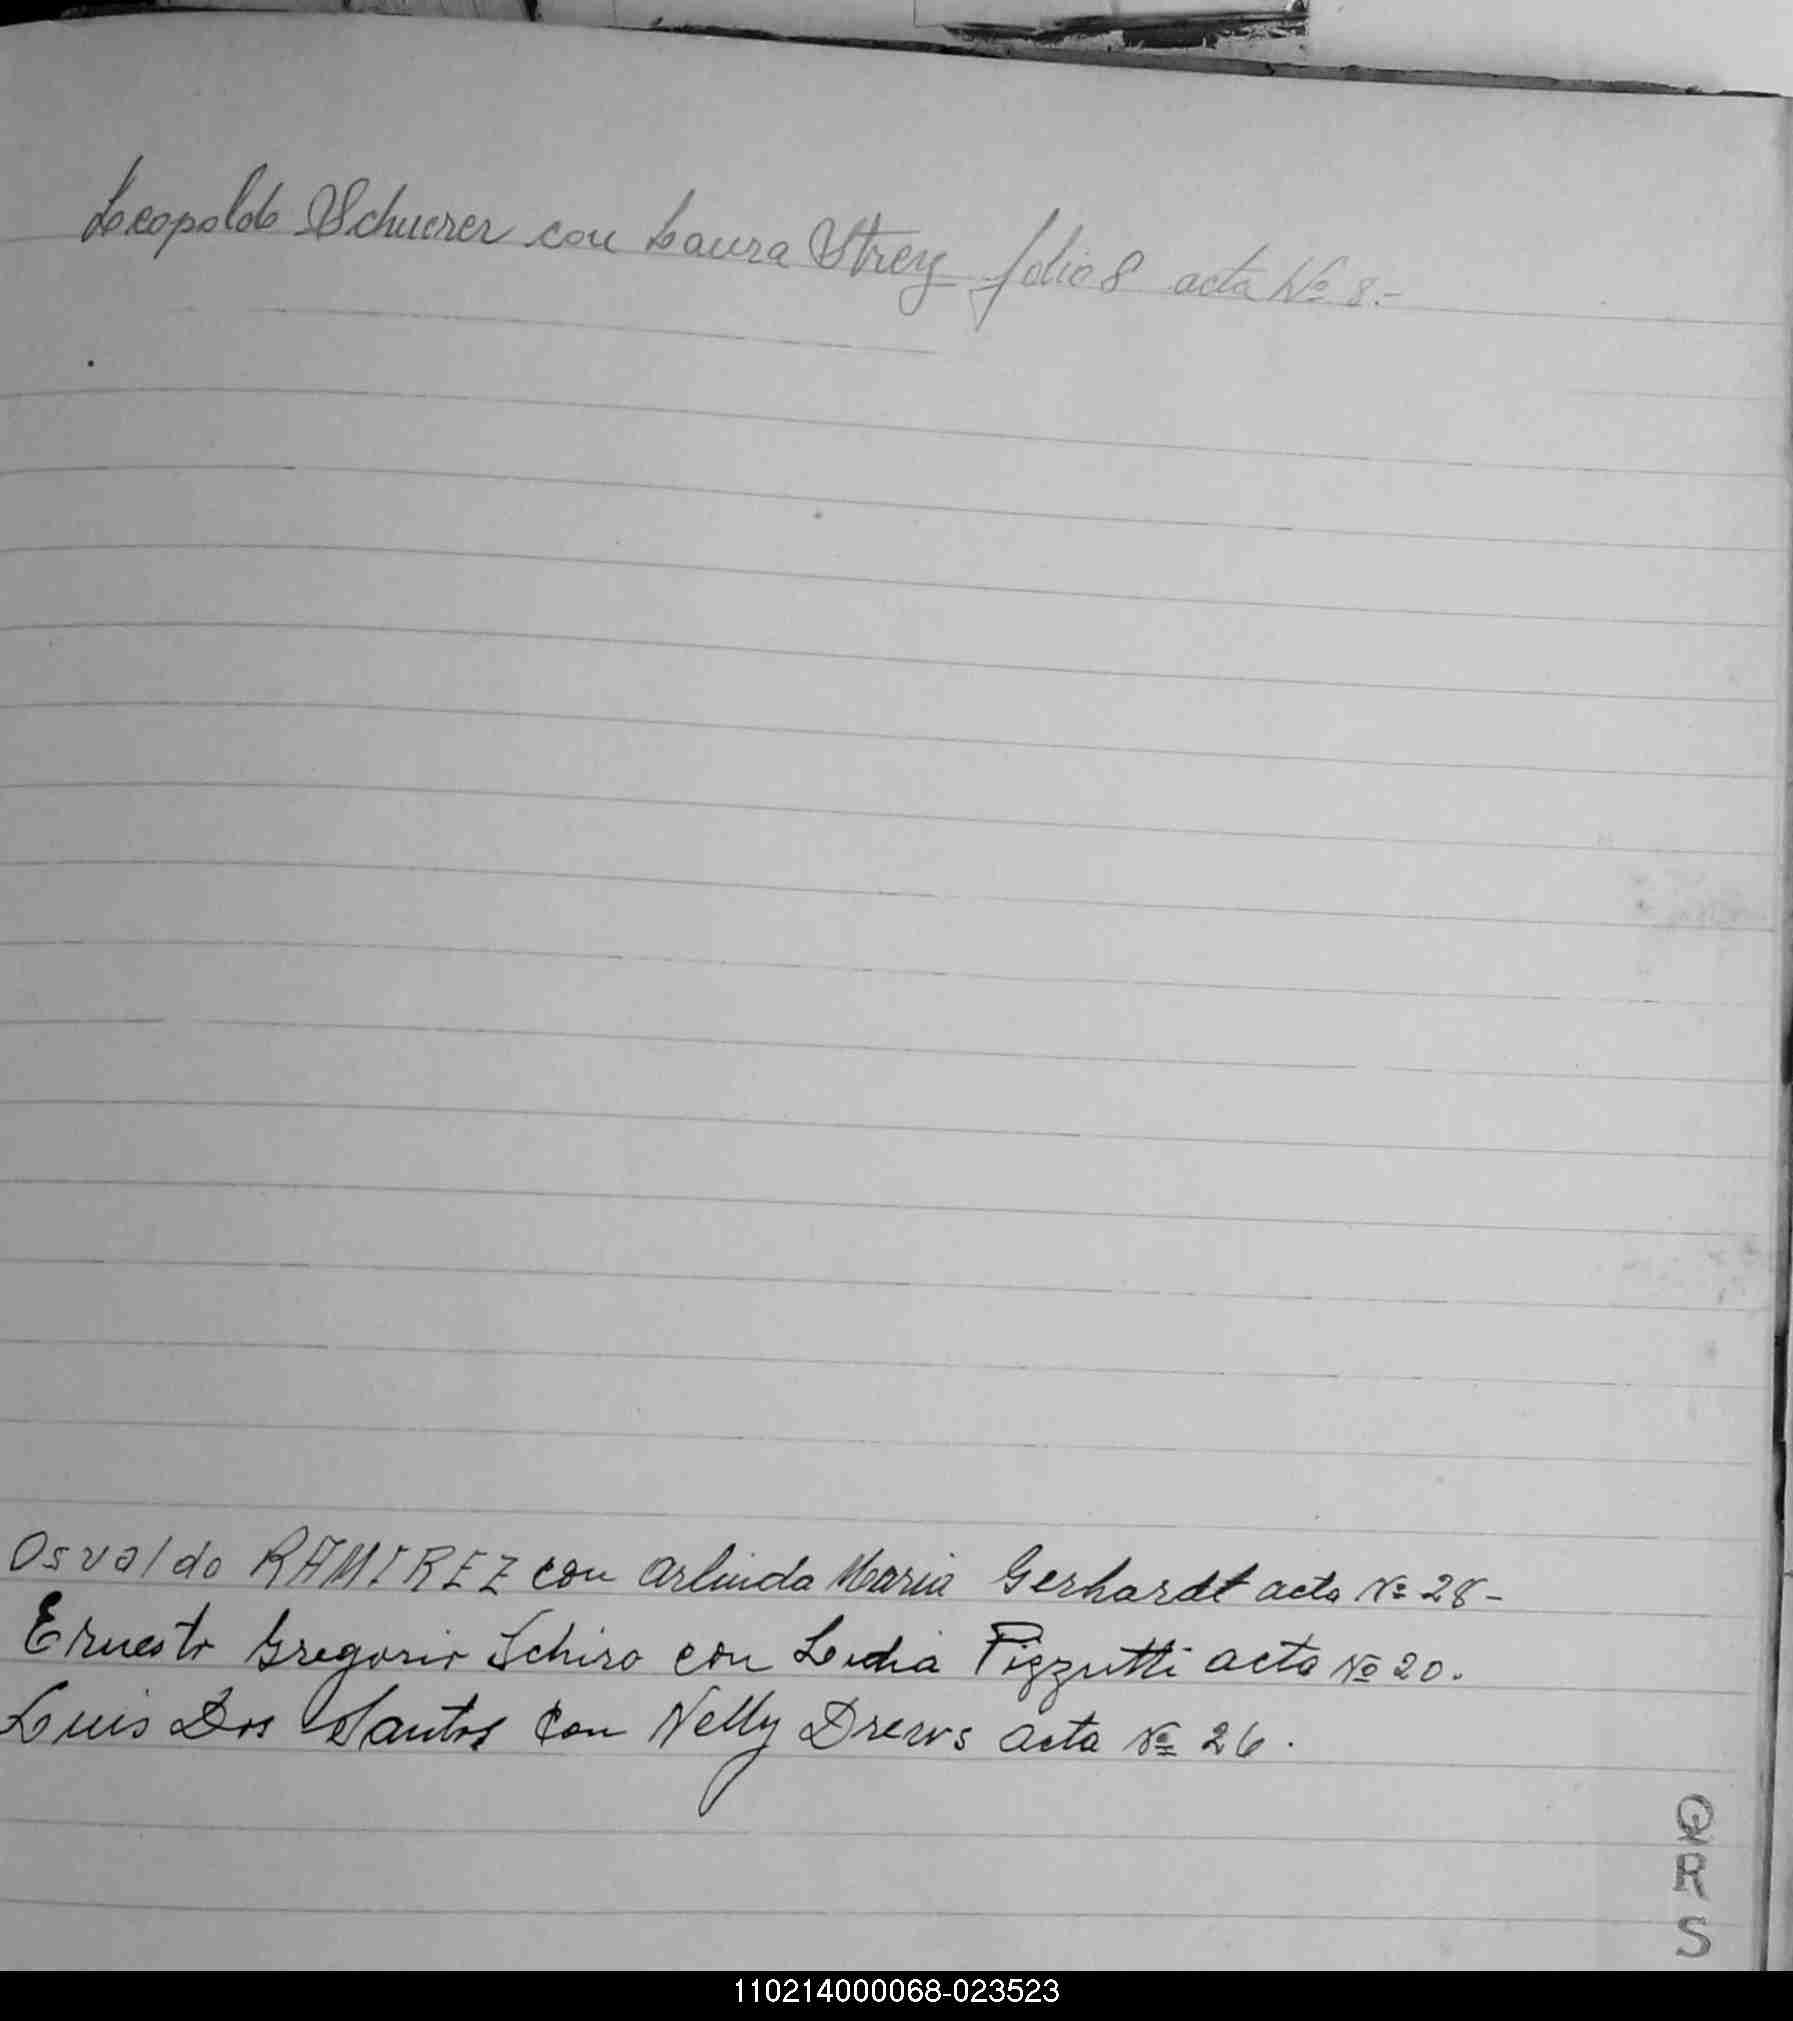 Leopoldo Schuerer con Laura Strey folio 8 acta Nº 8.-
Osvaldo RAMIREZ con Arlinda Maria Gerhardt acta Nº 28-
Ernesto Gregorio Schiro con Lidia Pizzutti acta Nº 20.
Luis Dos Santos con Nelly Drews acta Nº 26.
Q
R
S
110214000068-023523